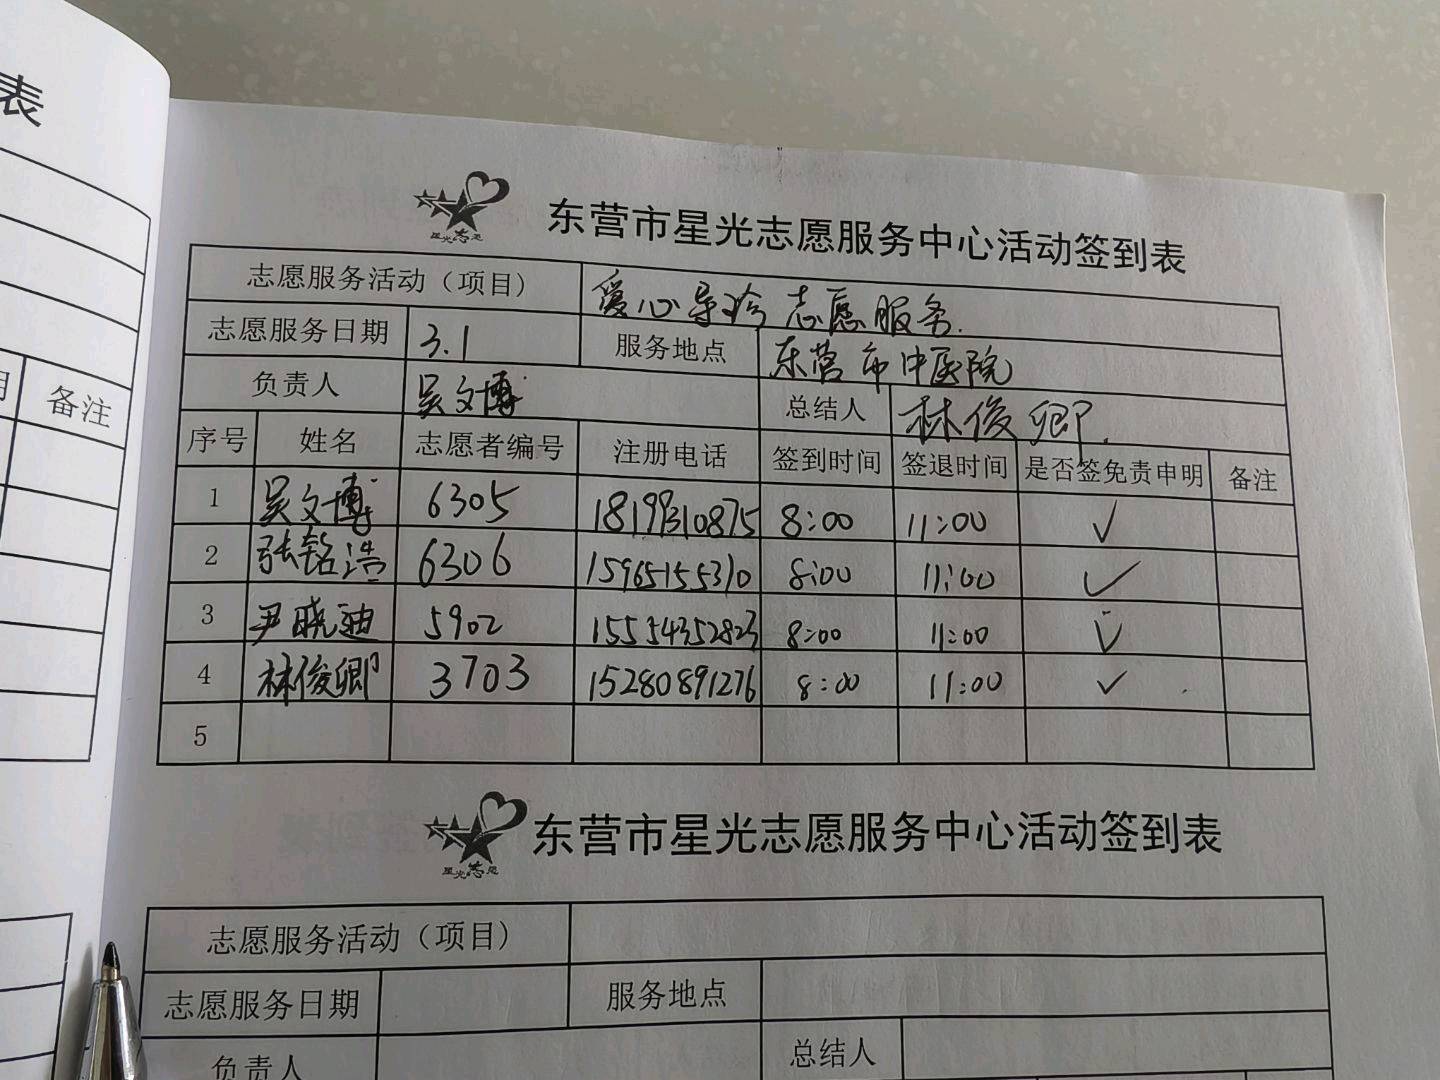 表
备注
星光志愿
东营市星光志愿服务中心活动签到表
志愿服务活动（项目） 爱心导诊志愿服务.
志愿服务日期 3.1 服务地点 东营市中医院
负责人 吴文博 总结人 林俊卿.
序号 姓名 志愿者编号 注册电话 签到时间 签退时间 是否签免责申明 备注
1 吴文博 6305 18199310875 8:00 11:00 ✓
2 张铭浩 6306 15965155310 8:00 11:00 ✓
3 尹晓迪 5902 15554352823 8:00 11:00 ✓
4 林俊卿 3703 15280891276 8:00 11:00 ✓
5
星光志愿
东营市星光志愿服务中心活动签到表
志愿服务活动（项目）
志愿服务日期 服务地点
负责人 总结人